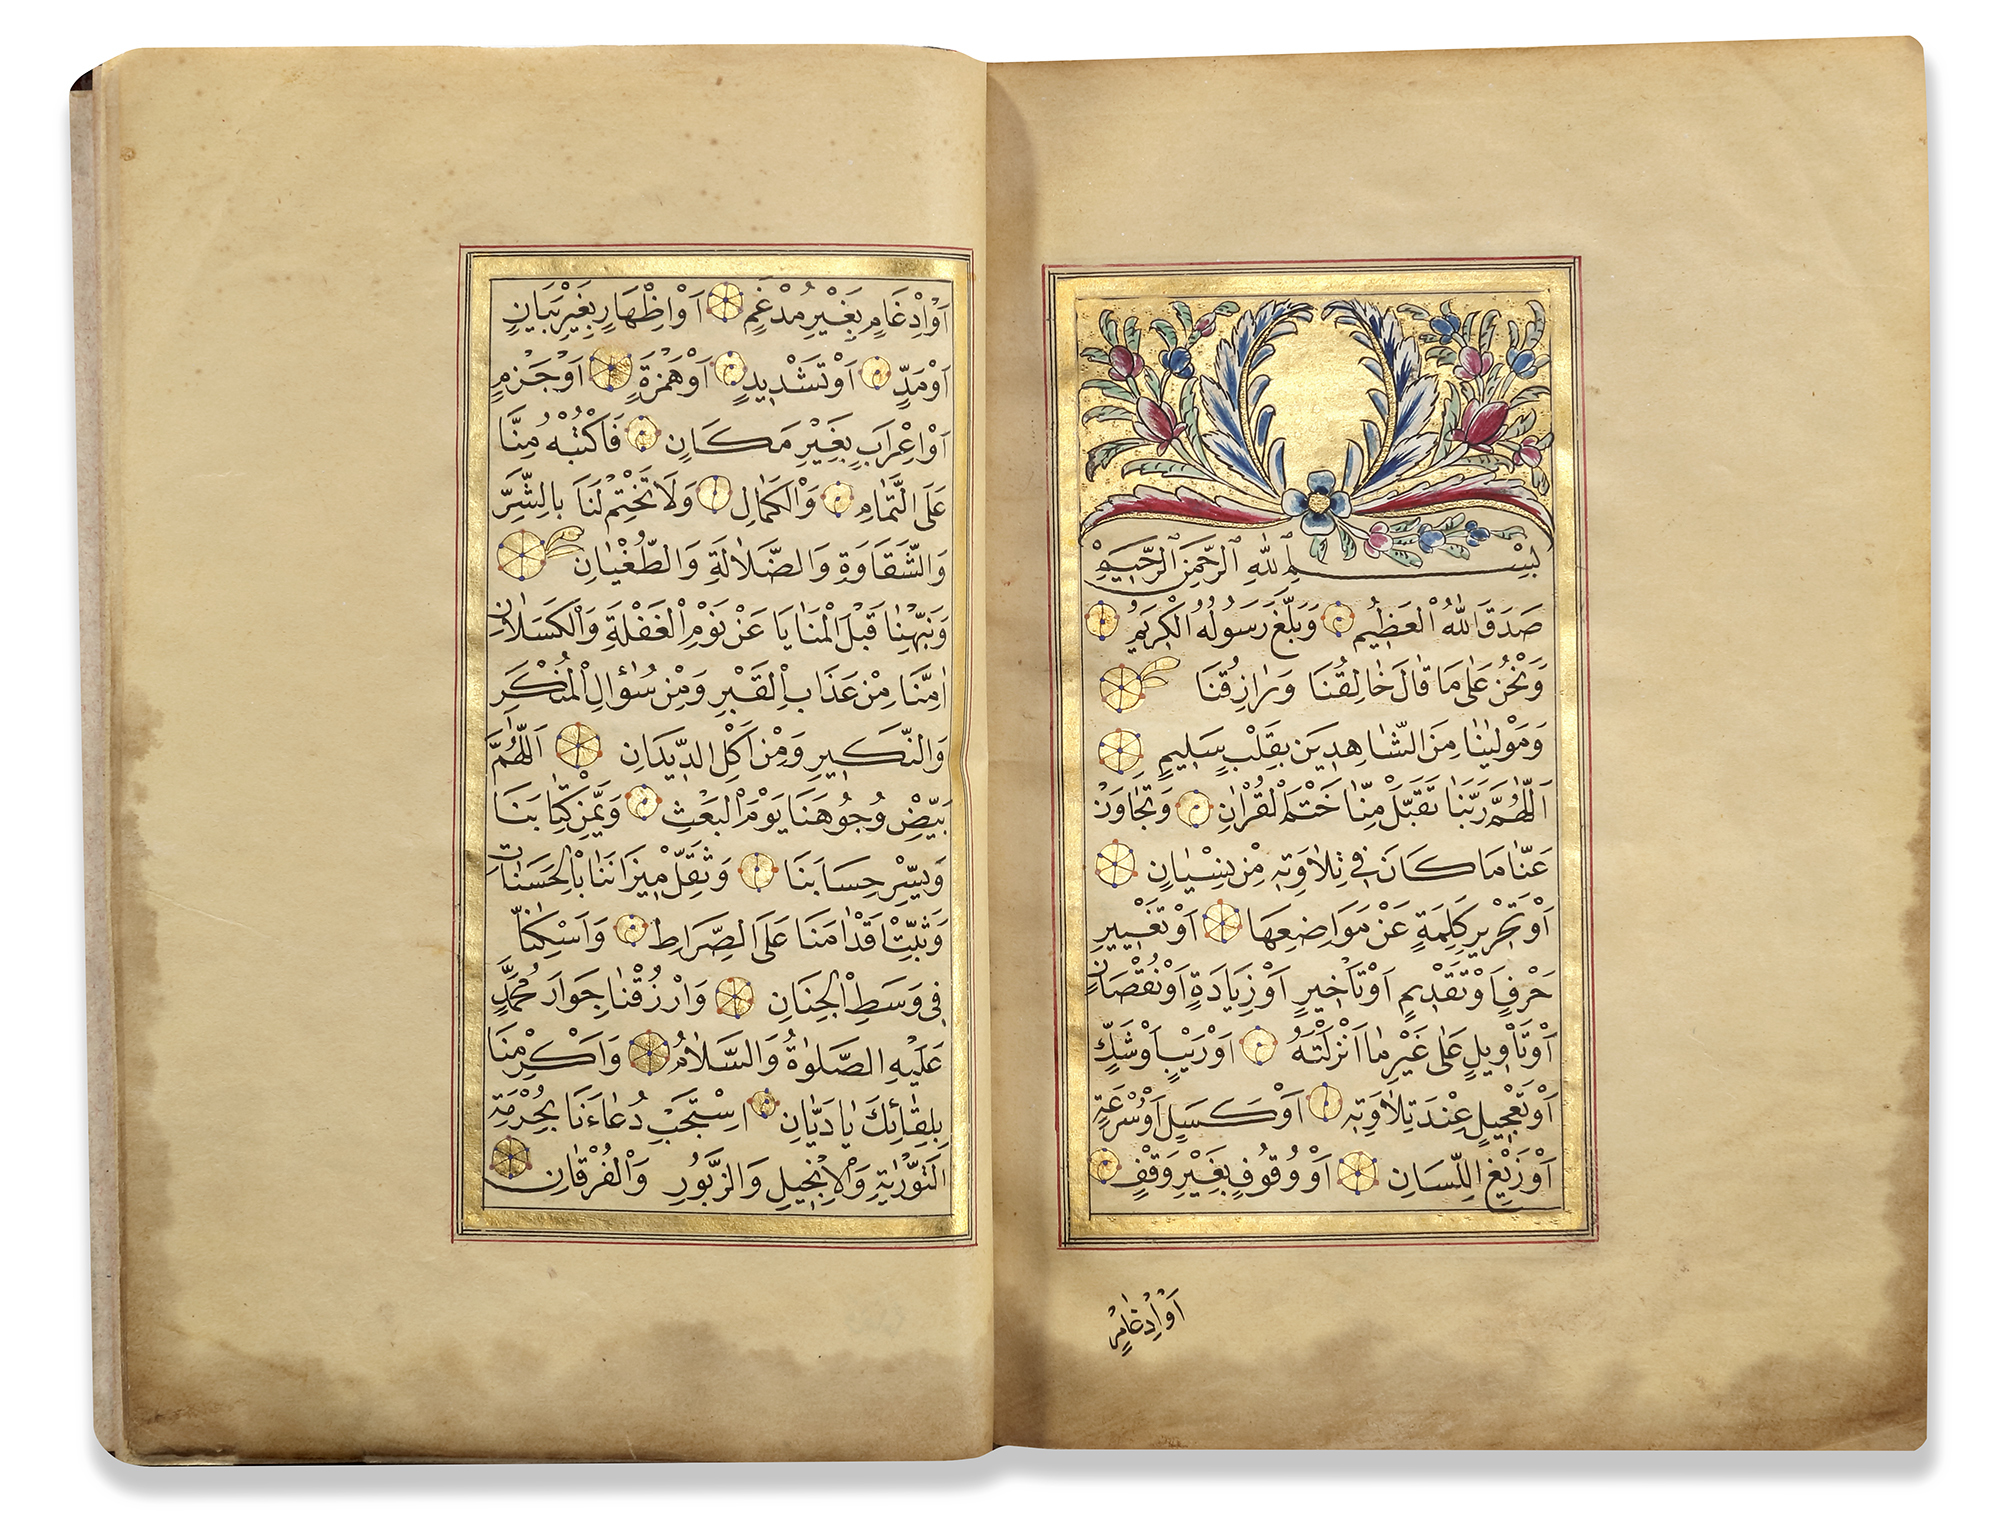 بِسْمِ اللّٰهِ الرَّحْمٰنِ الرَّحِيمِ
صَدَقَ اللّٰهُ الْعَظِيمُ وَبَلَّغَ رَسُولُهُ الْكَرِيمُ
وَنَحْنُ عَلٰى مَا قَالَ خَالِقُنَا وَرَازِقُنَا
وَمَوْلٰينَا مِنَ الشَّاهِدِينَ بِقَلْبٍ سَلِيمٍ
اَللّٰهُمَّ رَبَّنَا تَقَبَّلْ مِنَّا خَتْمَ الْقُرْاٰنِ وَتَجَاوَزْ
عَنَّا مَا كَانَ فِي تِلَاوَتِهِ مِنْ نِسْيَانٍ
اَوْ تَحْرِيرِ كَلِمَةٍ عَنْ مَوَاضِعِهَا اَوْ تَغْيِيرِ
حَرْفٍ اَوْ تَقْدِيمٍ اَوْ تَأْخِيرٍ اَوْ زِيَادَةٍ اَوْ نُقْصَانٍ
اَوْ تَأْوِيلٍ عَلٰى غَيْرِ مَا اَنْزَلْتَهُ اَوْ رَيْبٍ اَوْ شَكٍّ
اَوْ تَعْجِيلٍ عِنْدَ تِلَاوَتِهِ اَوْ كَسَلٍ اَوْ سُرْعَةٍ
اَوْ زَيْغِ اللِّسَانِ اَوْ وُقُوفٍ بِغَيْرِ وَقْفٍ
اَوْ اِدْغَامٍ
اَوْ اِدْغَامٍ بِغَيْرِ مُدْغَمٍ اَوْ اِظْهَارٍ بِغَيْرِ بَيَانٍ
اَوْ مَدٍّ اَوْ تَشْدِيدٍ اَوْ هَمْزَةٍ اَوْ جَزْمٍ
اَوْ اِعْرَابٍ بِغَيْرِ مَكَانٍ فَاكْتُبْهُ مِنَّا
عَلَى التَّمَامِ وَالْكَمَالِ وَلَا تَخْتِمْ لَنَا بِالشَّرِّ
وَالشَّقَاوَةِ وَالضَّلَالَةِ وَالطُّغْيَانِ
وَنَبِّهْنَا قَبْلَ الْمَنَايَا عَنْ نَوْمِ الْغَفْلَةِ وَالْكَسَلَانِ
اٰمِنَّا مِنْ عَذَابِ الْقَبْرِ وَمِنْ سُؤَالِ الْمُنْكَرِ
وَالنَّكِيرِ وَمِنْ اَكْلِ الدِّيدَانِ اَللّٰهُمَّ
بَيِّضْ وُجُوهَنَا يَوْمَ الْبَعْثِ وَيَمِّنْ كِتَابَنَا
وَيَسِّرْ حِسَابَنَا وَثَقِّلْ مِيزَانَنَا بِالْحَسَنَاتِ
وَثَبِّتْ اَقْدَامَنَا عَلَى الصِّرَاطِ وَاَسْكِنَّا
فِي وَسَطِ الْجِنَانِ وَارْزُقْنَا جِوَارَ مُحَمَّدٍ
عَلَيْهِ الصَّلٰوةُ وَالسَّلَامُ وَاَكْرِمْنَا
بِلِقَائِكَ يَا دَيَّانُ اِسْتَجِبْ دُعَاءَنَا بِحُرْمَةِ
التَّوْرٰيةِ وَالْاِنْجِيلِ وَالزَّبُورِ وَالْفُرْقَانِ